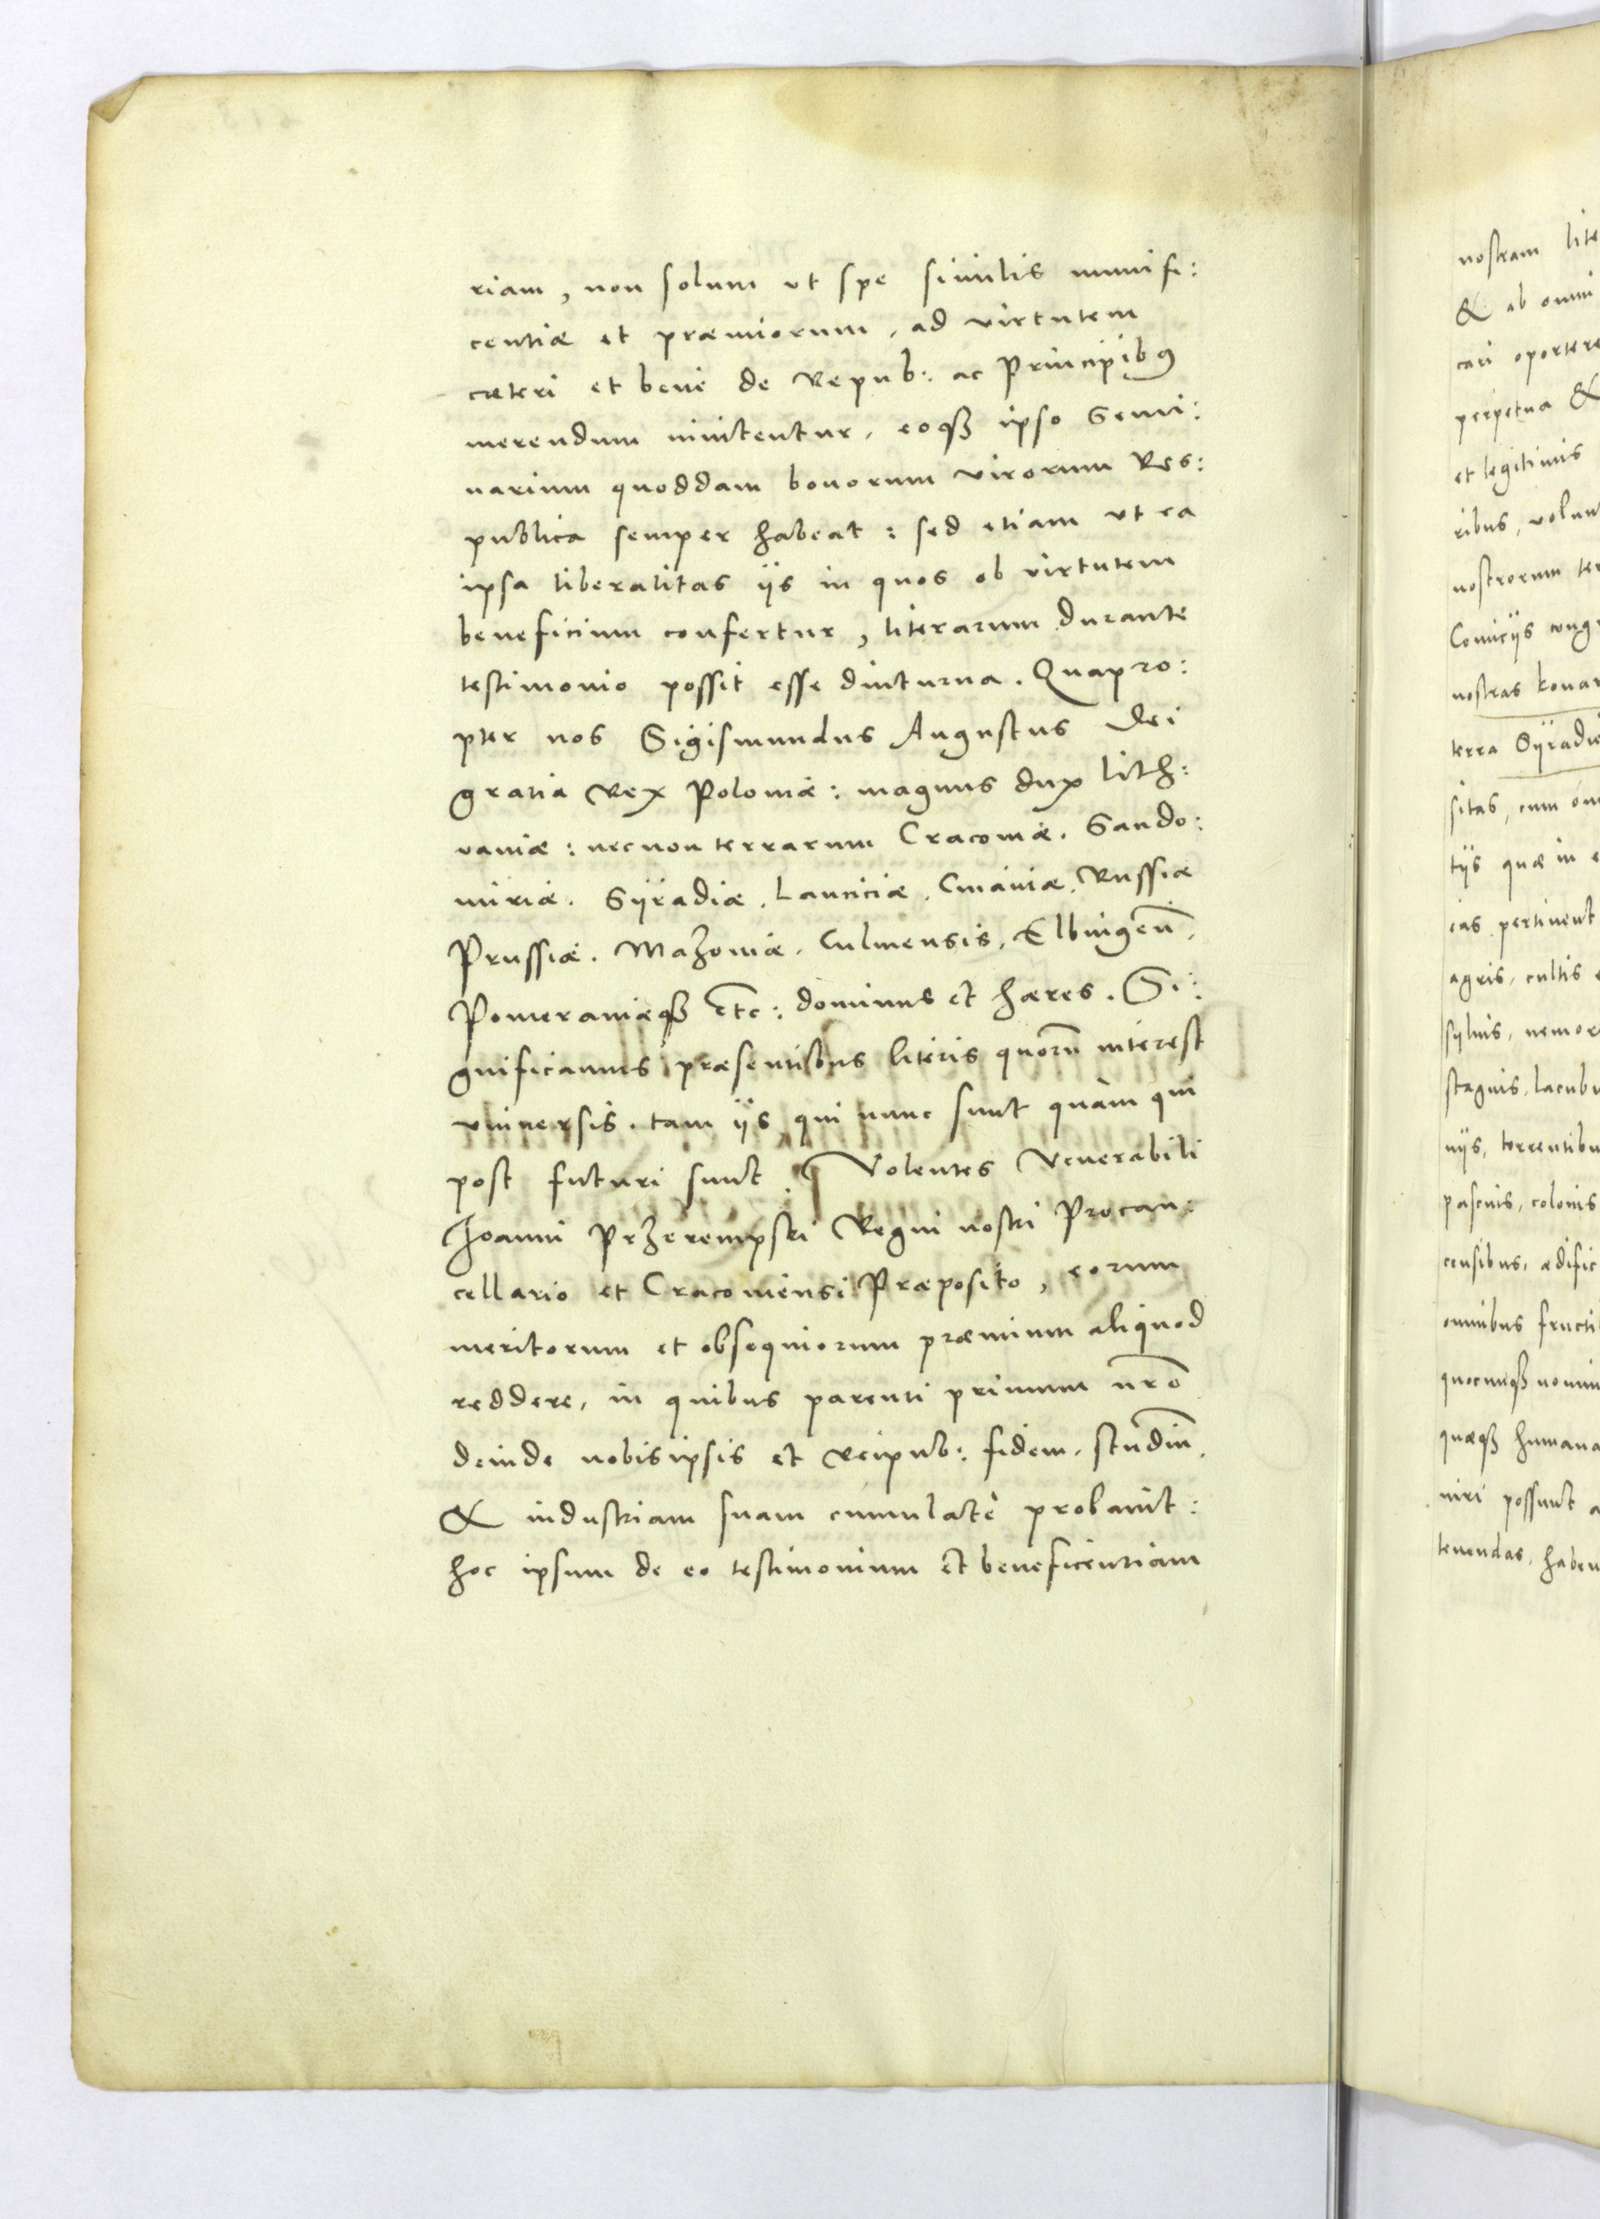 riam, non solum vt spe similis munifi:
centiæ et præmiorum, ad virtutem
cæteri et bene de Repub: ac Principibus
merendum invitentur, eoq3 ipso Semi:
narium quoddam bonorum virorum Res:
publica semper habeat: sed etiam vt ea
ipsa liberalitas ijs in quos ob virtutem
beneficium confertur, literarum durante
testimonio possit esse diuturna. Quapro:
pter nos Sigismundus Augustus Dei
gratia Rex Poloniæ: magnus dux lith:
vaniæ: necnon terrarum Cracoviæ. Sando:
miriæ. Syradiæ. Lanciciæ. Cuiaviæ. Russiæ
Prussiæ. Mazoviæ. Culmensis. Elbingeñ.
Pomeraniæq3 etc: dominus et hæres. Si:
gnificamus præsentibus literis quorũ interest
vniuersis. tam ijs qui nunc sunt quàm qui
post futuri sunt. Volentes Venerabili
Joanni Przerempski Regni nostri Procan:
cellario et Cracoviensi Præposito, eorum
meritorum et obsequiorum præmium aliquod
reddere, in quibus parenti primum nrõ
deinde nobisipsis et Reipub: fidem, studiũ,
& industriam suam cumulatè probavit:
hoc ipsum de eo testimonium et beneficentiam
nostram
& ab omni
cari oportere
perpetua &
et legitimis
ribus, volun
nostrorum ter
Comitijs cong
nostras Konar
terra Syradie
sitas, cum om
tijs quæ in e
cas pertinent
agris, cultis
syluis, nemor
stagnis, lacub
uijs, torrentibu
pascuis, colonis
censibus, ædific
omnibus fructi
quocunq3 nomin
quæq3 humana
niri possunt a
tenendas, haben